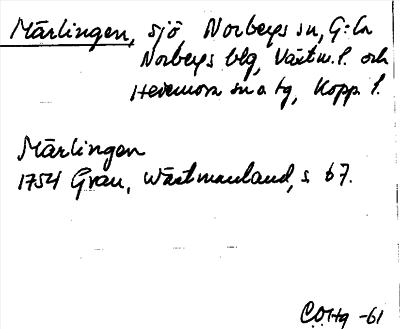 Märlingen, sjö, Norbergs sn, G:la
Norbergs blg, Västm. l. och
Hedemora sn o tg, Kopp. l.
Märlingen
1754 Grau, Wästmanland, s 67.
COHg -61